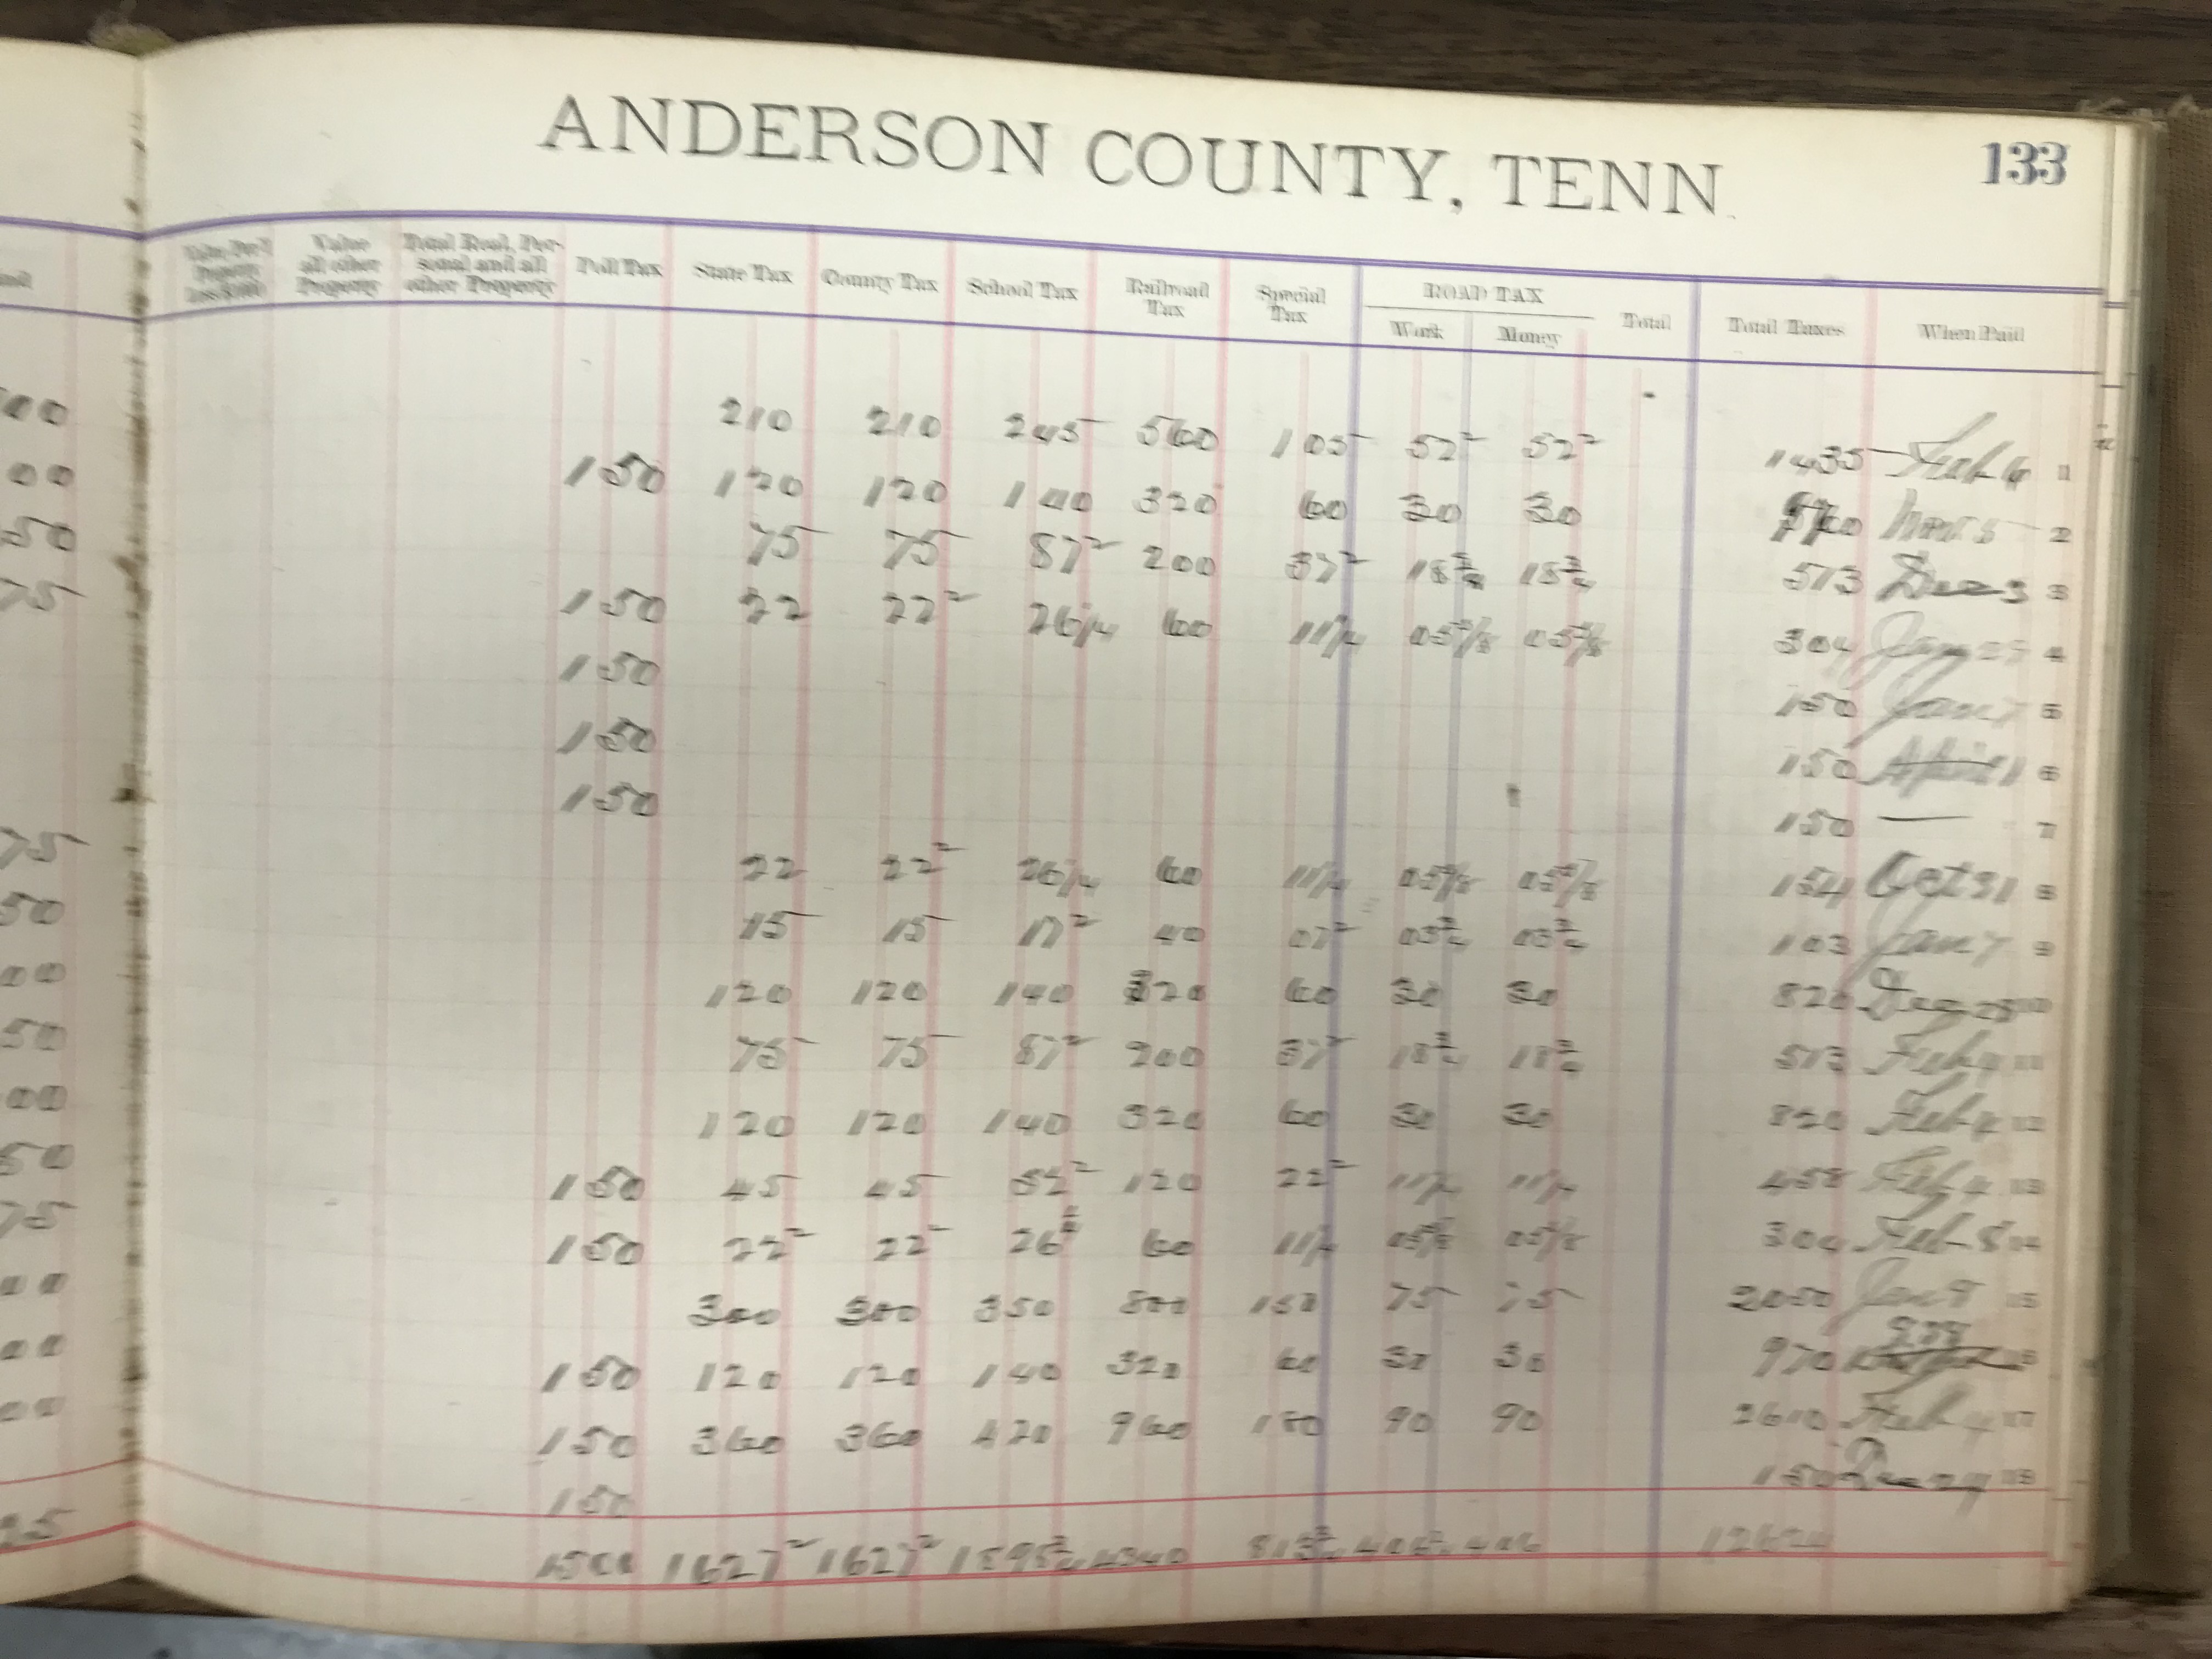 ANDERSON COUNTY, TENN.
133
Value all other Property
Total Real, Personal and all other Property
Poll Tax
State Tax
County Tax
School Tax
Railroad Tax
Special Tax
ROAD TAX
Work
Money
Total
Total Taxes
When Paid
00 210 210 245 560 105 52² 52² 1435 Feb 1
00 150 120 120 140 320 60 30 30 2
50 75 75 87² 200 37² 18¾ 18¾ 513 Dec 3 3
75 150 22 22² 26¼ 60 11¼ 05⅝ 05⅝ 304 Jan 4
150 150 Jan 7 5
150 150 April 1 6
150 150 — 7
75 22 22² 26¼ 60 11¼ 05⅝ 05⅝ 154 Oct 31 8
50 15 15 17² 40 07² 03¾ 03¾ 103 Jan 7 9
00 120 120 140 320 60 30 30 820 Dec 28 10
50 75 75 87² 200 37² 18¾ 18¾ 513 Feb 4 11
00 120 120 140 320 60 30 30 820 Feb 4 12
50 150 45 45 52² 120 22² 11¼ 11¼ 458 Feb 4 13
75 150 22² 22² 26¼ 60 11¼ 05⅝ 05⅝ 304 Feb 8 14
00 300 300 350 800 150 75 75 2050 Jan 8 15
00 150 120 120 140 320 60 30 30 970 16
00 150 360 360 420 960 180 90 90 2610 Feb 4 17
150 150 Dec 18
25 1500 1627² 1627² 1898¾ 4340 813¾ 406 406 12624